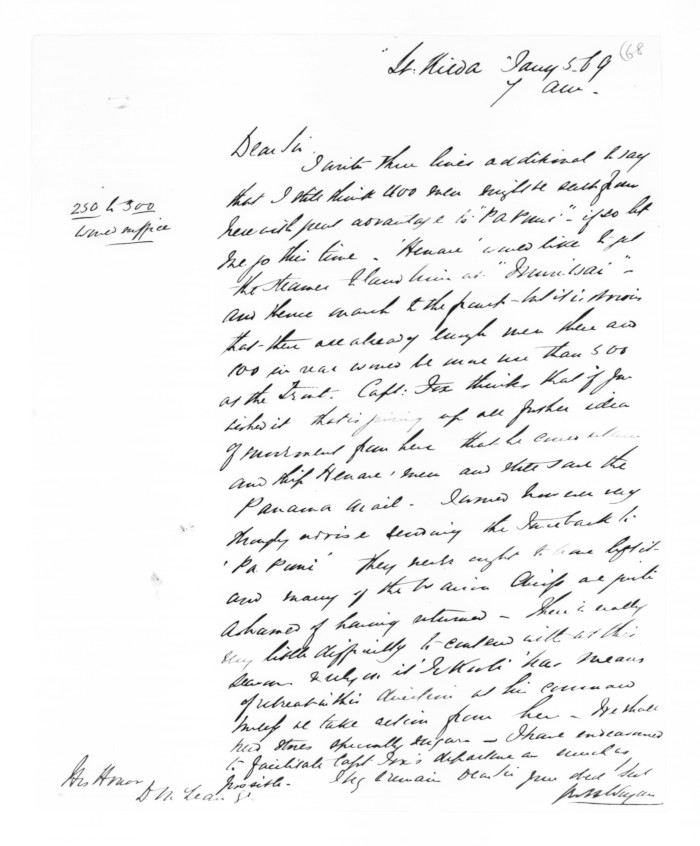 (68
"St. Hilda" Jany 5. 69
7 am.
Dear Sir
I write these lines additional to say
that I still think 400 men might be sent from
here with great advantage to "Pa Puni" - if so let
me go this time - 'Henare' would like to get
the steamer to land him at
and thence march to the front - but it is
that there are already enough men there and
100 in rear would be more use than 500
at the front. Capt: Fox thinks that if you
wished it that is giving up all further idea
of movement from here that he could return
and ship Henare's men and still save the
Panama Mail. I would however very
strongly advise sending the back to
'Pa Puni' they ought to have left it
and many of the Chiefs are
ashamed of having returned - There is really
very little difficulty to contend with at this
season & rely on it 'Te Kooti' has means
of retreat in this direction at his command
unless we take action from here - We shall
need stores specially sugar - I have endeavoured
to facilitate Capt Fox's departure as much as
possible. I beg remain Dear Sir your obed' Svt
250 to 300
would suffice
His Honor
D McLean